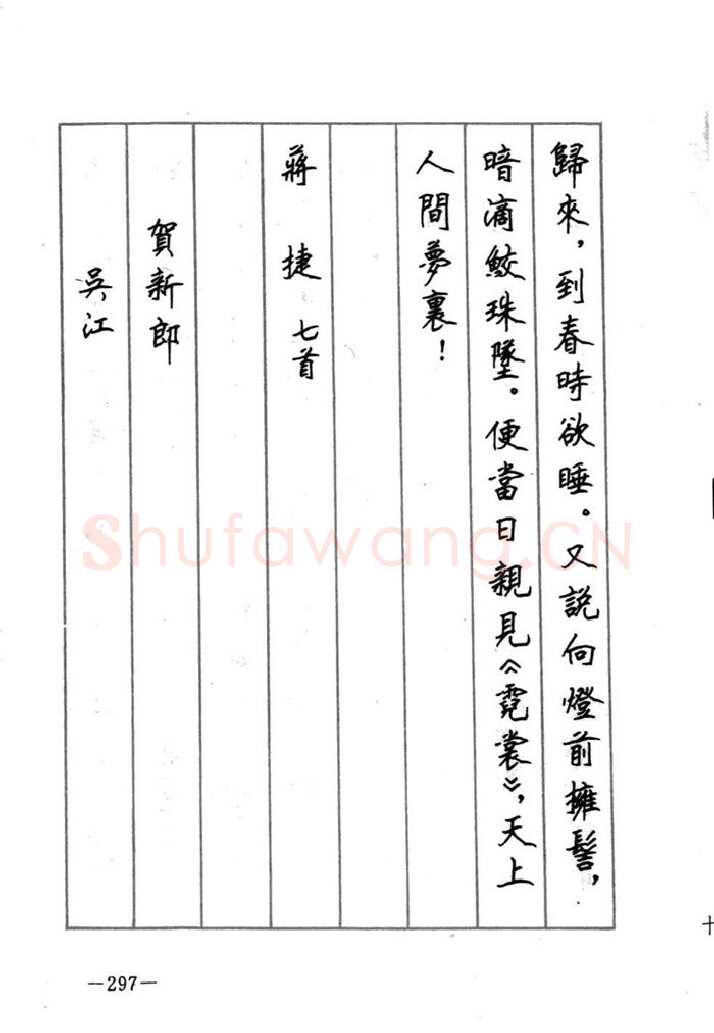 歸來，到春時欲睡。又説向燈前擁髻，
暗滴鮫珠墜。便當日親見《霓裳》，天上
人間夢裏！
蔣捷 七首
賀新郎
吳江
Shufawang.CN
—297—
十